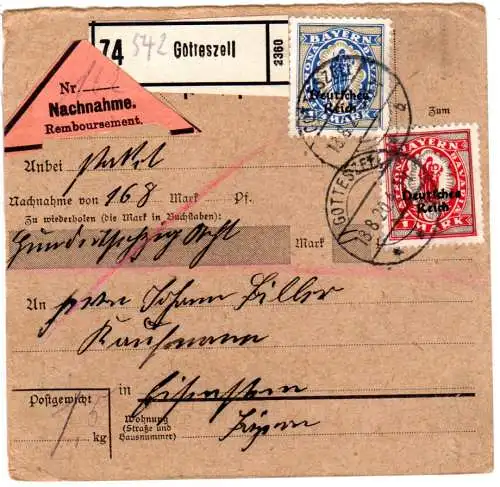 74 542 Gotteszell 2360
BAYERN
Deutsches
Reich
Nr.
Nachnahme.
Remboursement.
Zum
Anbei Paket
BAYERN
Deutsches
Reich
1 MARK
GOTTESZELL
18.8.20
Nachnahme von 168 Mark Pf.
Zu wiederholen (die Mark in Buchstaben):
Hundertsechzig Acht Mark
An Herrn Johann Biller
Kaufmann
Postgewicht
kg
in Eisenstein
Wohnung
(Straße und
Hausnummer)
Bayern